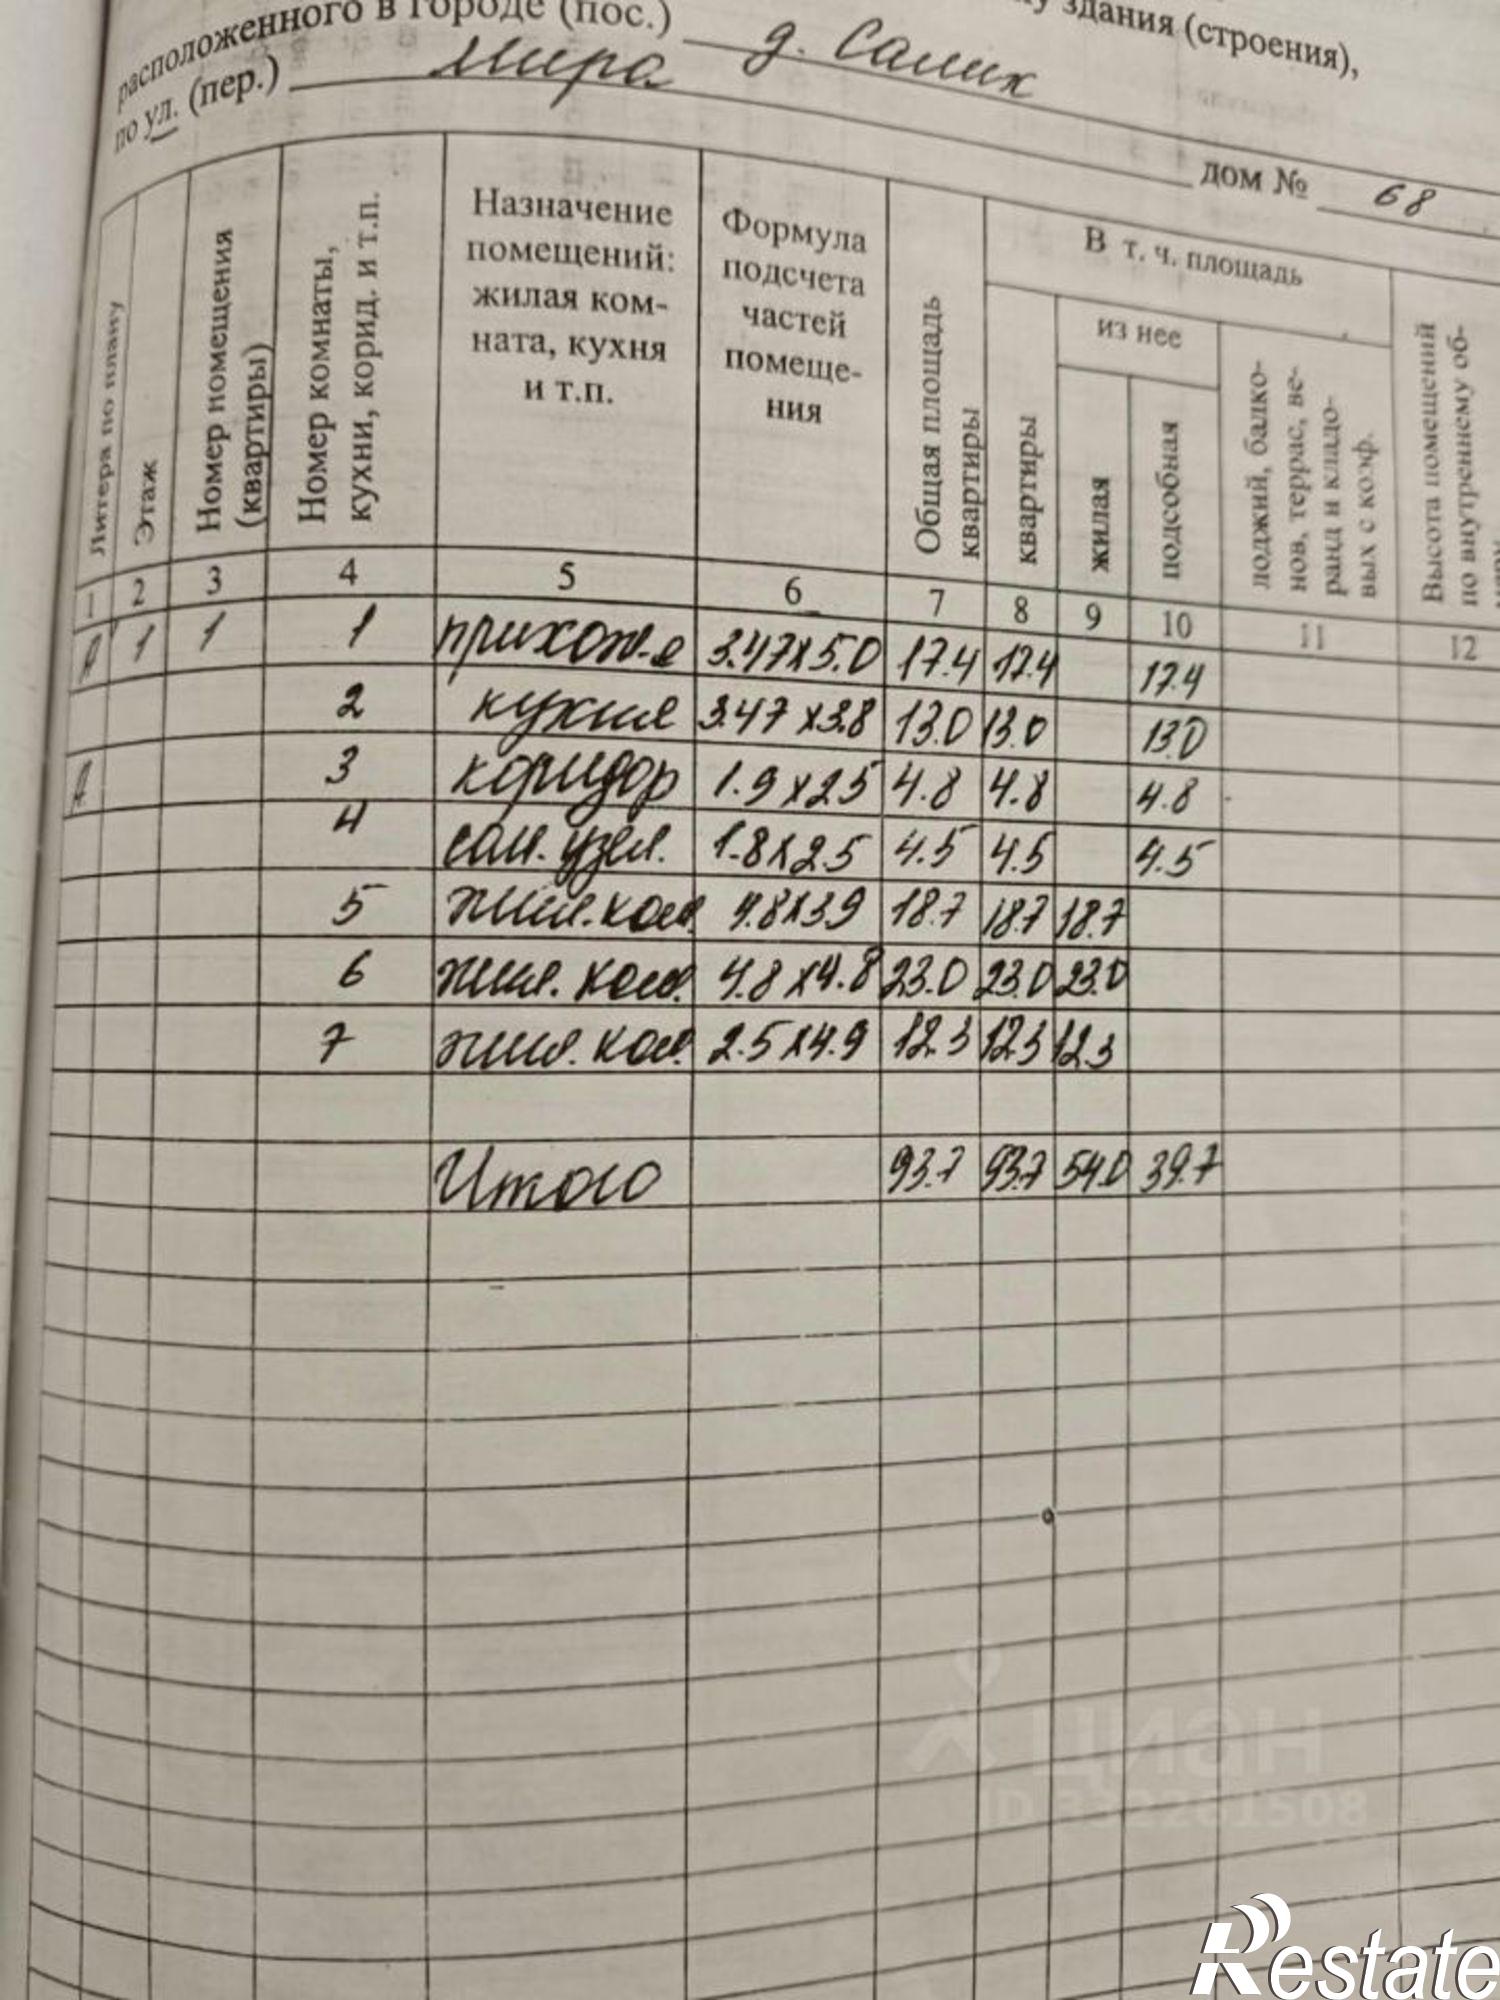 у здания (строения),
расположенного в городе (пос.) д. Салих
по ул. (пер.) Мира дом № 68
Литера по плану
Этаж
Номер помещения
(квартиры)
Номер комнаты,
кухни, корид. и т.п.
Назначение
помещений:
жилая ком-
ната, кухня
и т.п.
Формула
подсчета
частей
помеще-
ния
Общая площадь
квартиры
В т. ч. площадь
квартиры
из нее
жилая
подсобная
лоджий, балко-
нов, террас, ве-
ранд и кладо-
вых с коэф.
Высота помещений
по внутреннему об-
1 2 3 4 5 6 7 8 9 10 11 12
А 1 1 1 прихож-я 3.47х5.0 17.4 17.4 17.4
2 кухня 3.47 х3.8 13.0 13.0 13.0
А 3 коридор 1.9 х2.5 4.8 4.8 4.8
4 сан. узел. 1.8х2.5 4.5 4.5 4.5
5 жил. ком. 4.8х3.9 18.7 18.7 18.7
6 жил. ком. 4.8 х4.8 23.0 23.0 23.0
7 жил. ком. 2.5 х4.9 12.3 12.3 12.3
Итого 93.7 93.7 54.0 39.7
циан
Restate